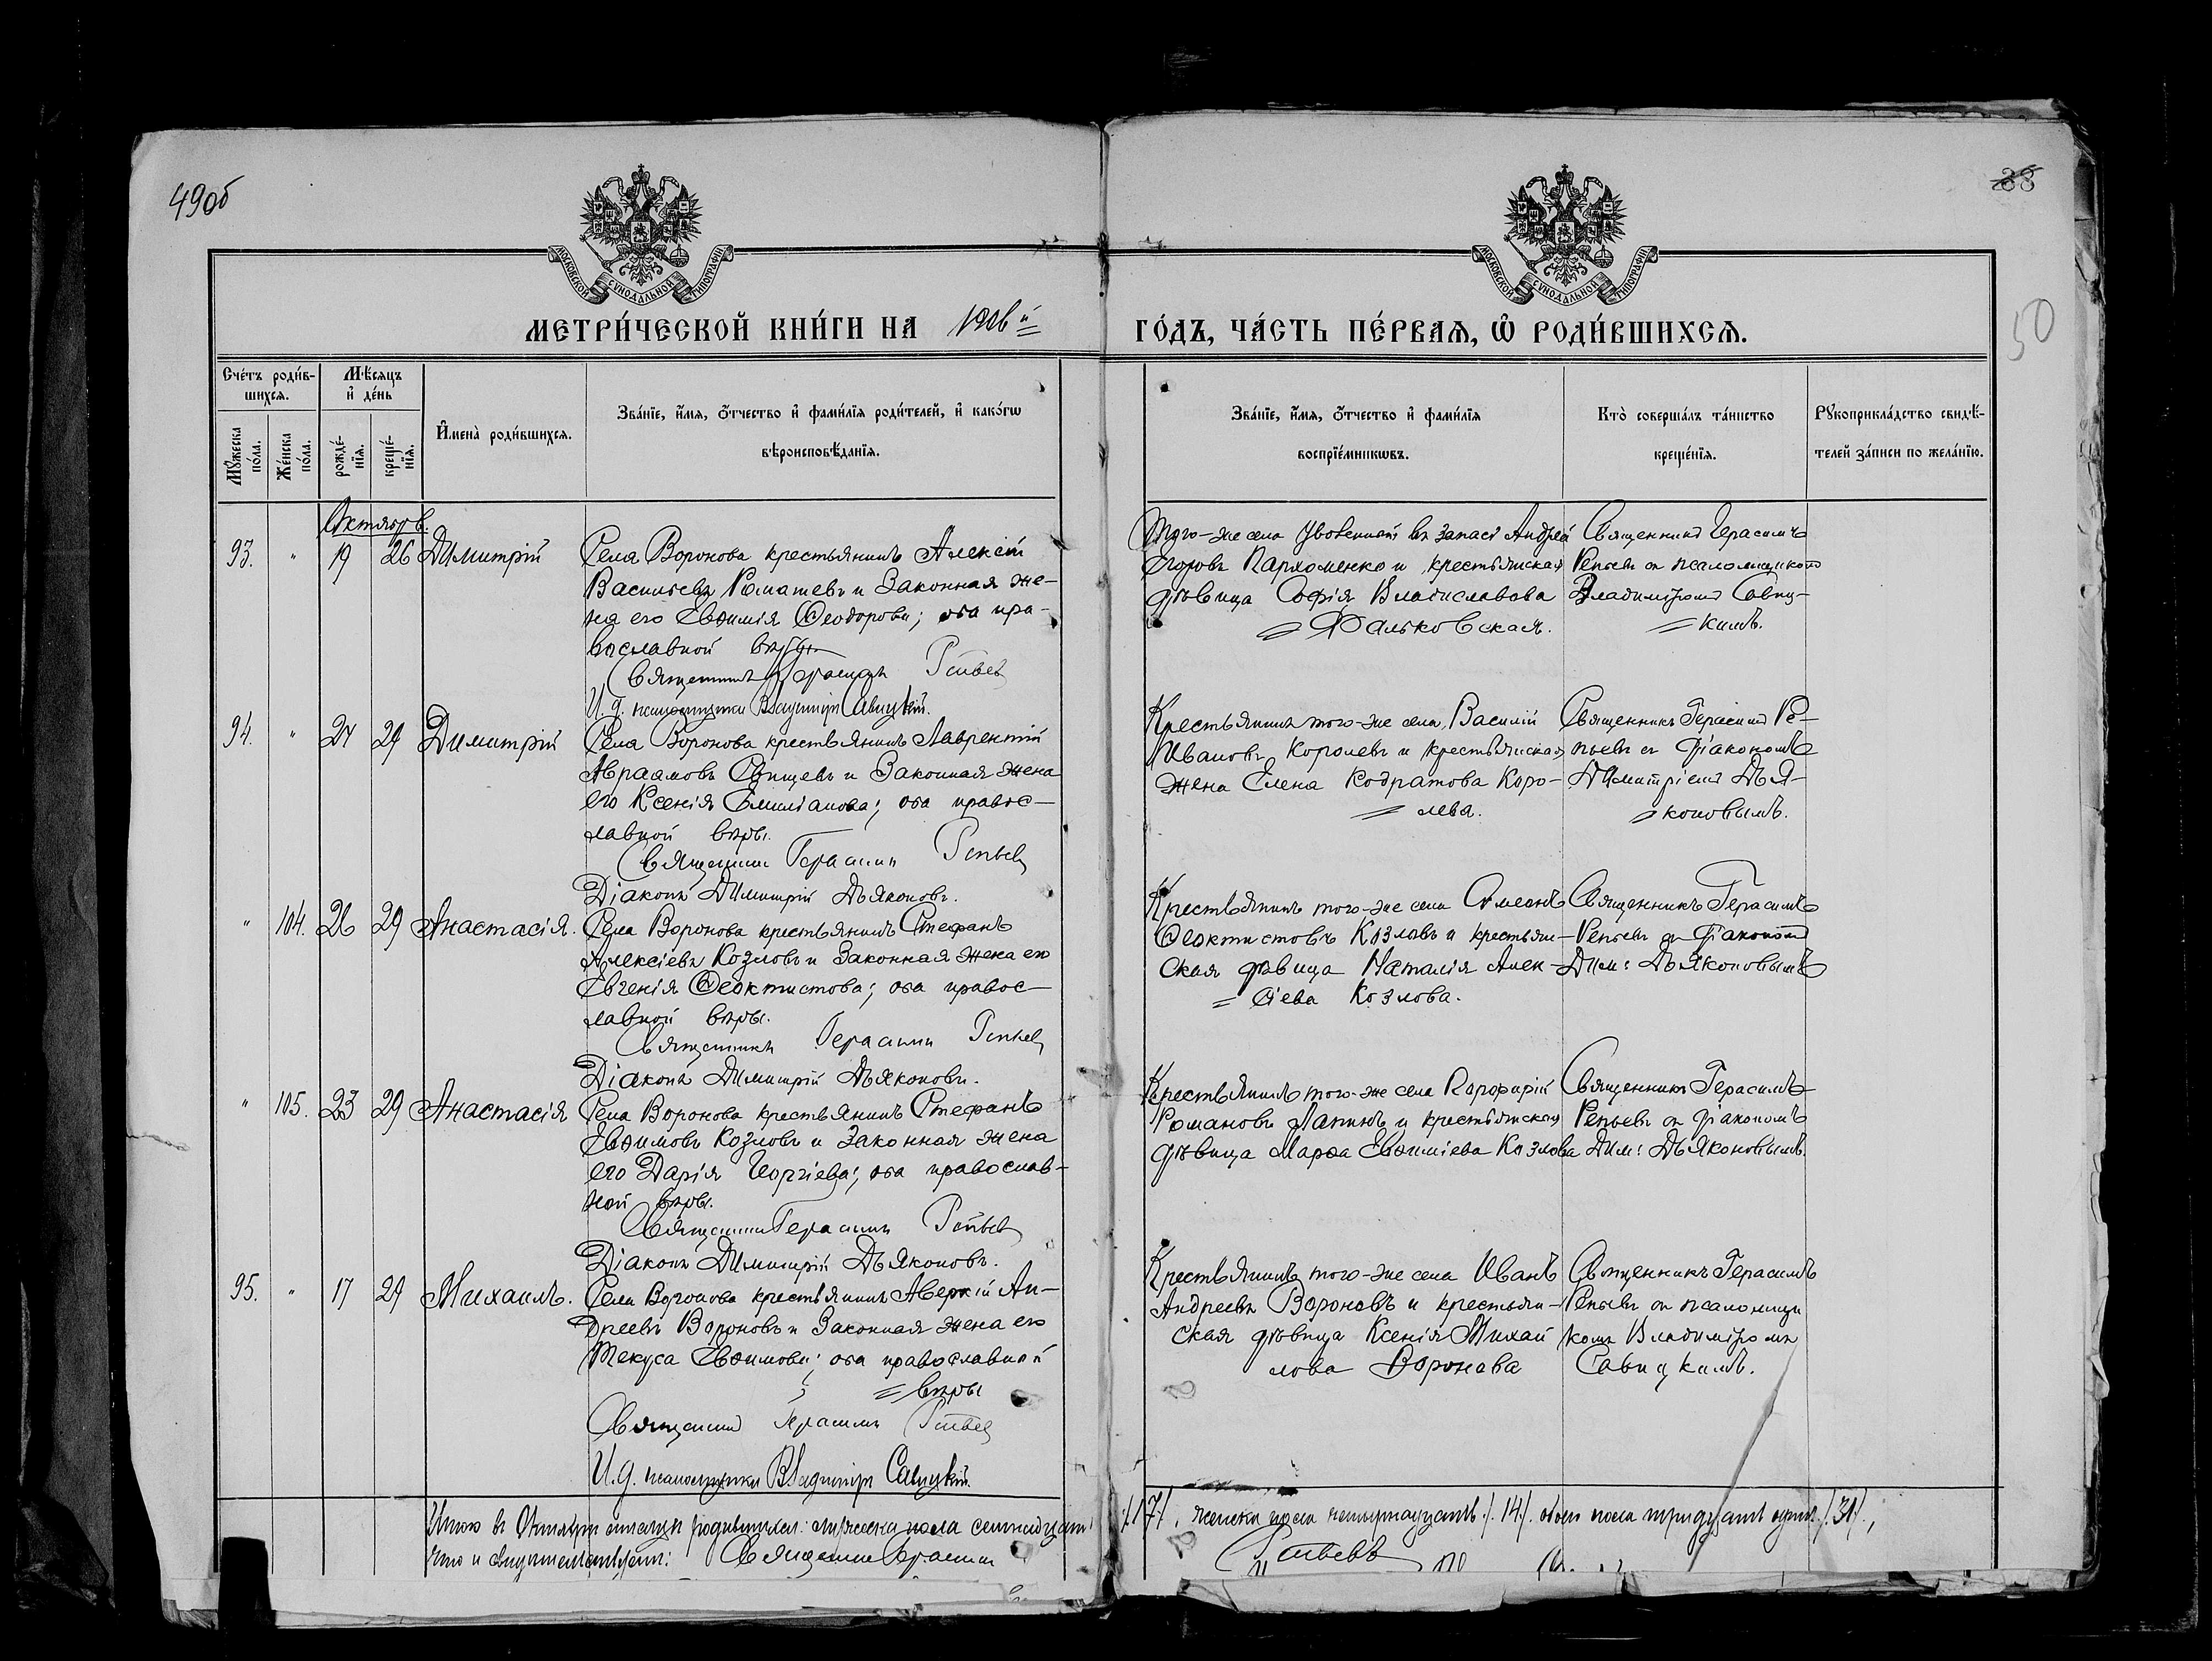 49об
38
50
МОСКОВСКОЙ СѴНОДАЛЬНОЙ ТИПОГРАФІИ
МОСКОВСКОЙ СѴНОДАЛЬНОЙ ТИПОГРАФІИ
МЕТРИ́ЧЕСКОЙ КНИ́ГИ НА 1906й ГО́ДЪ, ЧА́СТЬ ПЕ́РВАЯ, Ѽ РОДИ́ВШИХСЯ.
Сче́тъ роди́в-
шихся.
Мѣ́сяцъ
и҆ де́нь
Мꙋ́жеска
по́ла.
Же́нска
по́ла.
рожде́-
нїя.
креще́-
нїя.
И҆мена̀ роди́вшихся.
Зва́нїе, и҆́мя, ѻ҆́тчество и҆ фами́лїя роди́телей, и҆ како́гѡ
вѣроисповѣ́данїя.
Зва́нїе, и҆́мя, ѻ҆́тчество и҆ фами́лїя
воспрїе́мникѡвъ.
Кто̀ соверша́лъ та́инство
креще́нїя.
Рꙋкоприкла́дство свидѣ́-
телей за́писи по жела́нїю.
Октябрь.
93. " 19 26 Димитрій
Села Воронова крестьянинъ Алексій
Васильевъ Ромашевъ и законная же-
на его Евѳимія Ѳеодорова; оба пра-
вославной вѣры
Священникъ Герасимъ Репьев
И. д. псаломщика Владимиръ Савицкій.
Того-же села уволенный въ запасъ Андрей
Егоровъ Пархоменко и крестьянская
дѣвица Софія Владиславова
Фальковская.
Священникъ Герасимъ
Репьевъ съ псаломщикомъ
Владиміромъ Савиц-
кимъ.
94. " 24 29 Димитрій
Села Воронова крестьянинъ Лаврентій
Авраамовъ Свищевъ и законная жена
его Ксенія Емиліанова; оба правос-
лавной вѣры.
Священникъ Герасимъ Репьев
Діаконъ Димитрій Дьяконовъ.
Крестьянинъ того-же села Василій
Ивановъ Королевъ и крестьянская
жена Елена Кодратова Коро-
лева.
Священникъ Герасимъ Ре-
пьевъ съ діакономъ
Димитріемъ Дья-
коновымъ.
" 104. 26 29 Анастасія.
Села Воронова крестьянинъ Стефанъ
Алексіевъ Козловъ и законная жена его
Евгенія Ѳеоктистова; оба правос-
лавной вѣры.
Священникъ Герасимъ Репьев
Діаконъ Димитрій Дьяконовъ.
Крестьянинъ того-же села Симеонъ
Ѳеоктистовъ Козловъ и крестьян-
ская дѣвица Наталія Алек-
сіева Козлова.
Священникъ Герасимъ
Репьевъ съ діакономъ
Дим: Дьяконовымъ
" 105. 23 29 Анастасія
Села Воронова крестьянинъ Стефанъ
Евѳимовъ Козловъ и законная жена
его Дарія Георгіева; оба православ-
ной вѣры.
Священникъ Герасимъ Репьев
Діаконъ Димитрій Дьяконовъ.
Крестьянинъ того-же села Порфирій
Романовъ Лапинъ и крестьянская
дѣвица Марѳа Евѳиміева Козлова
Священникъ Герасимъ
Репьевъ съ діакономъ
Дим: Дьяконовымъ.
95. " 17 29 Михаилъ.
Села Воронова крестьянинъ Аверкій Ан-
дреевъ Вороновъ и законная жена его
Текуса Евѳимова; оба православной
вѣры
Священникъ Герасимъ Репьев
И. д. псаломщика Владимиръ Савицкій.
Крестьянинъ того-же села Иванъ
Андреевъ Вороновъ и крестьян-
ская дѣвица Ксенія Михай
лова Воронова
Священникъ Герасимъ
Репьевъ съ псаломщи
комъ Владиміромъ
Савицкимъ.
Итого въ Октябрѣ мѣсяцѣ родившихся: мужеска пола семнадцать /.17/. женска пола четырнадцать /.14/. обоего пола тридцать одинъ /.31/.,
что и свидѣтельствуемъ: Священникъ Герасимъ Репьевъ